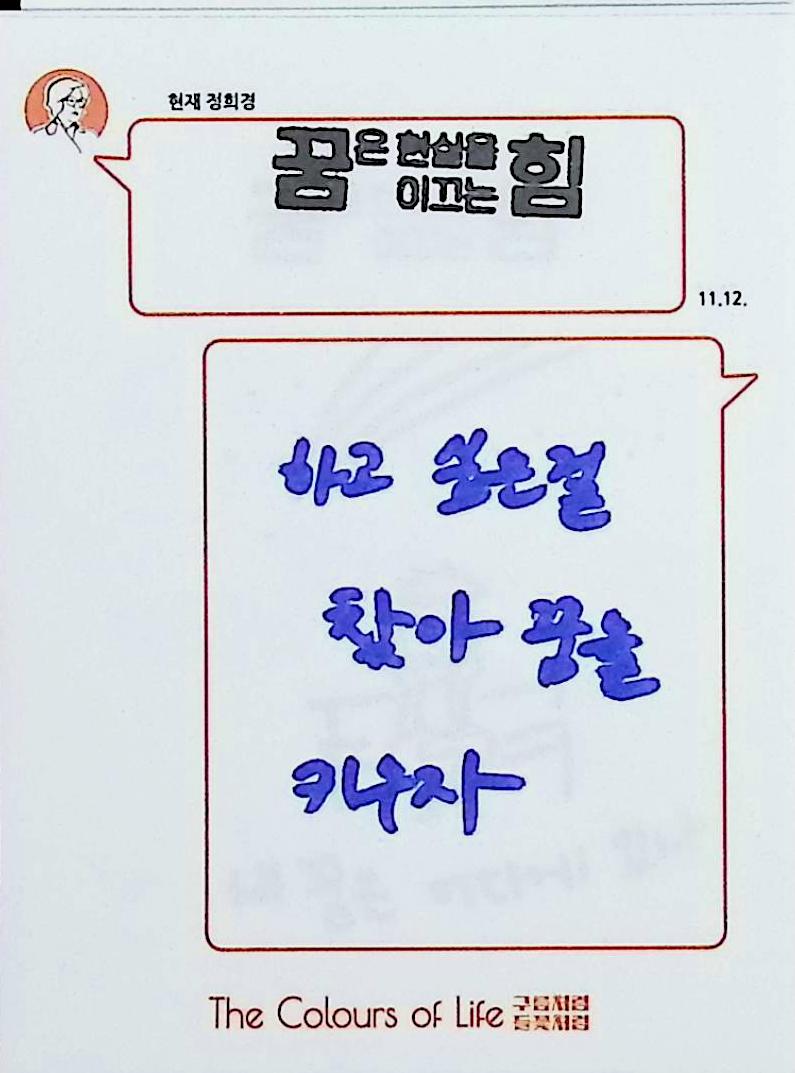 현재 정희경
꿈은 현실을
이끄는 힘
11.12.
하고 싶은걸
찾아 꿈을
키우자
The Colours of Life 구름처럼
들꽃처럼